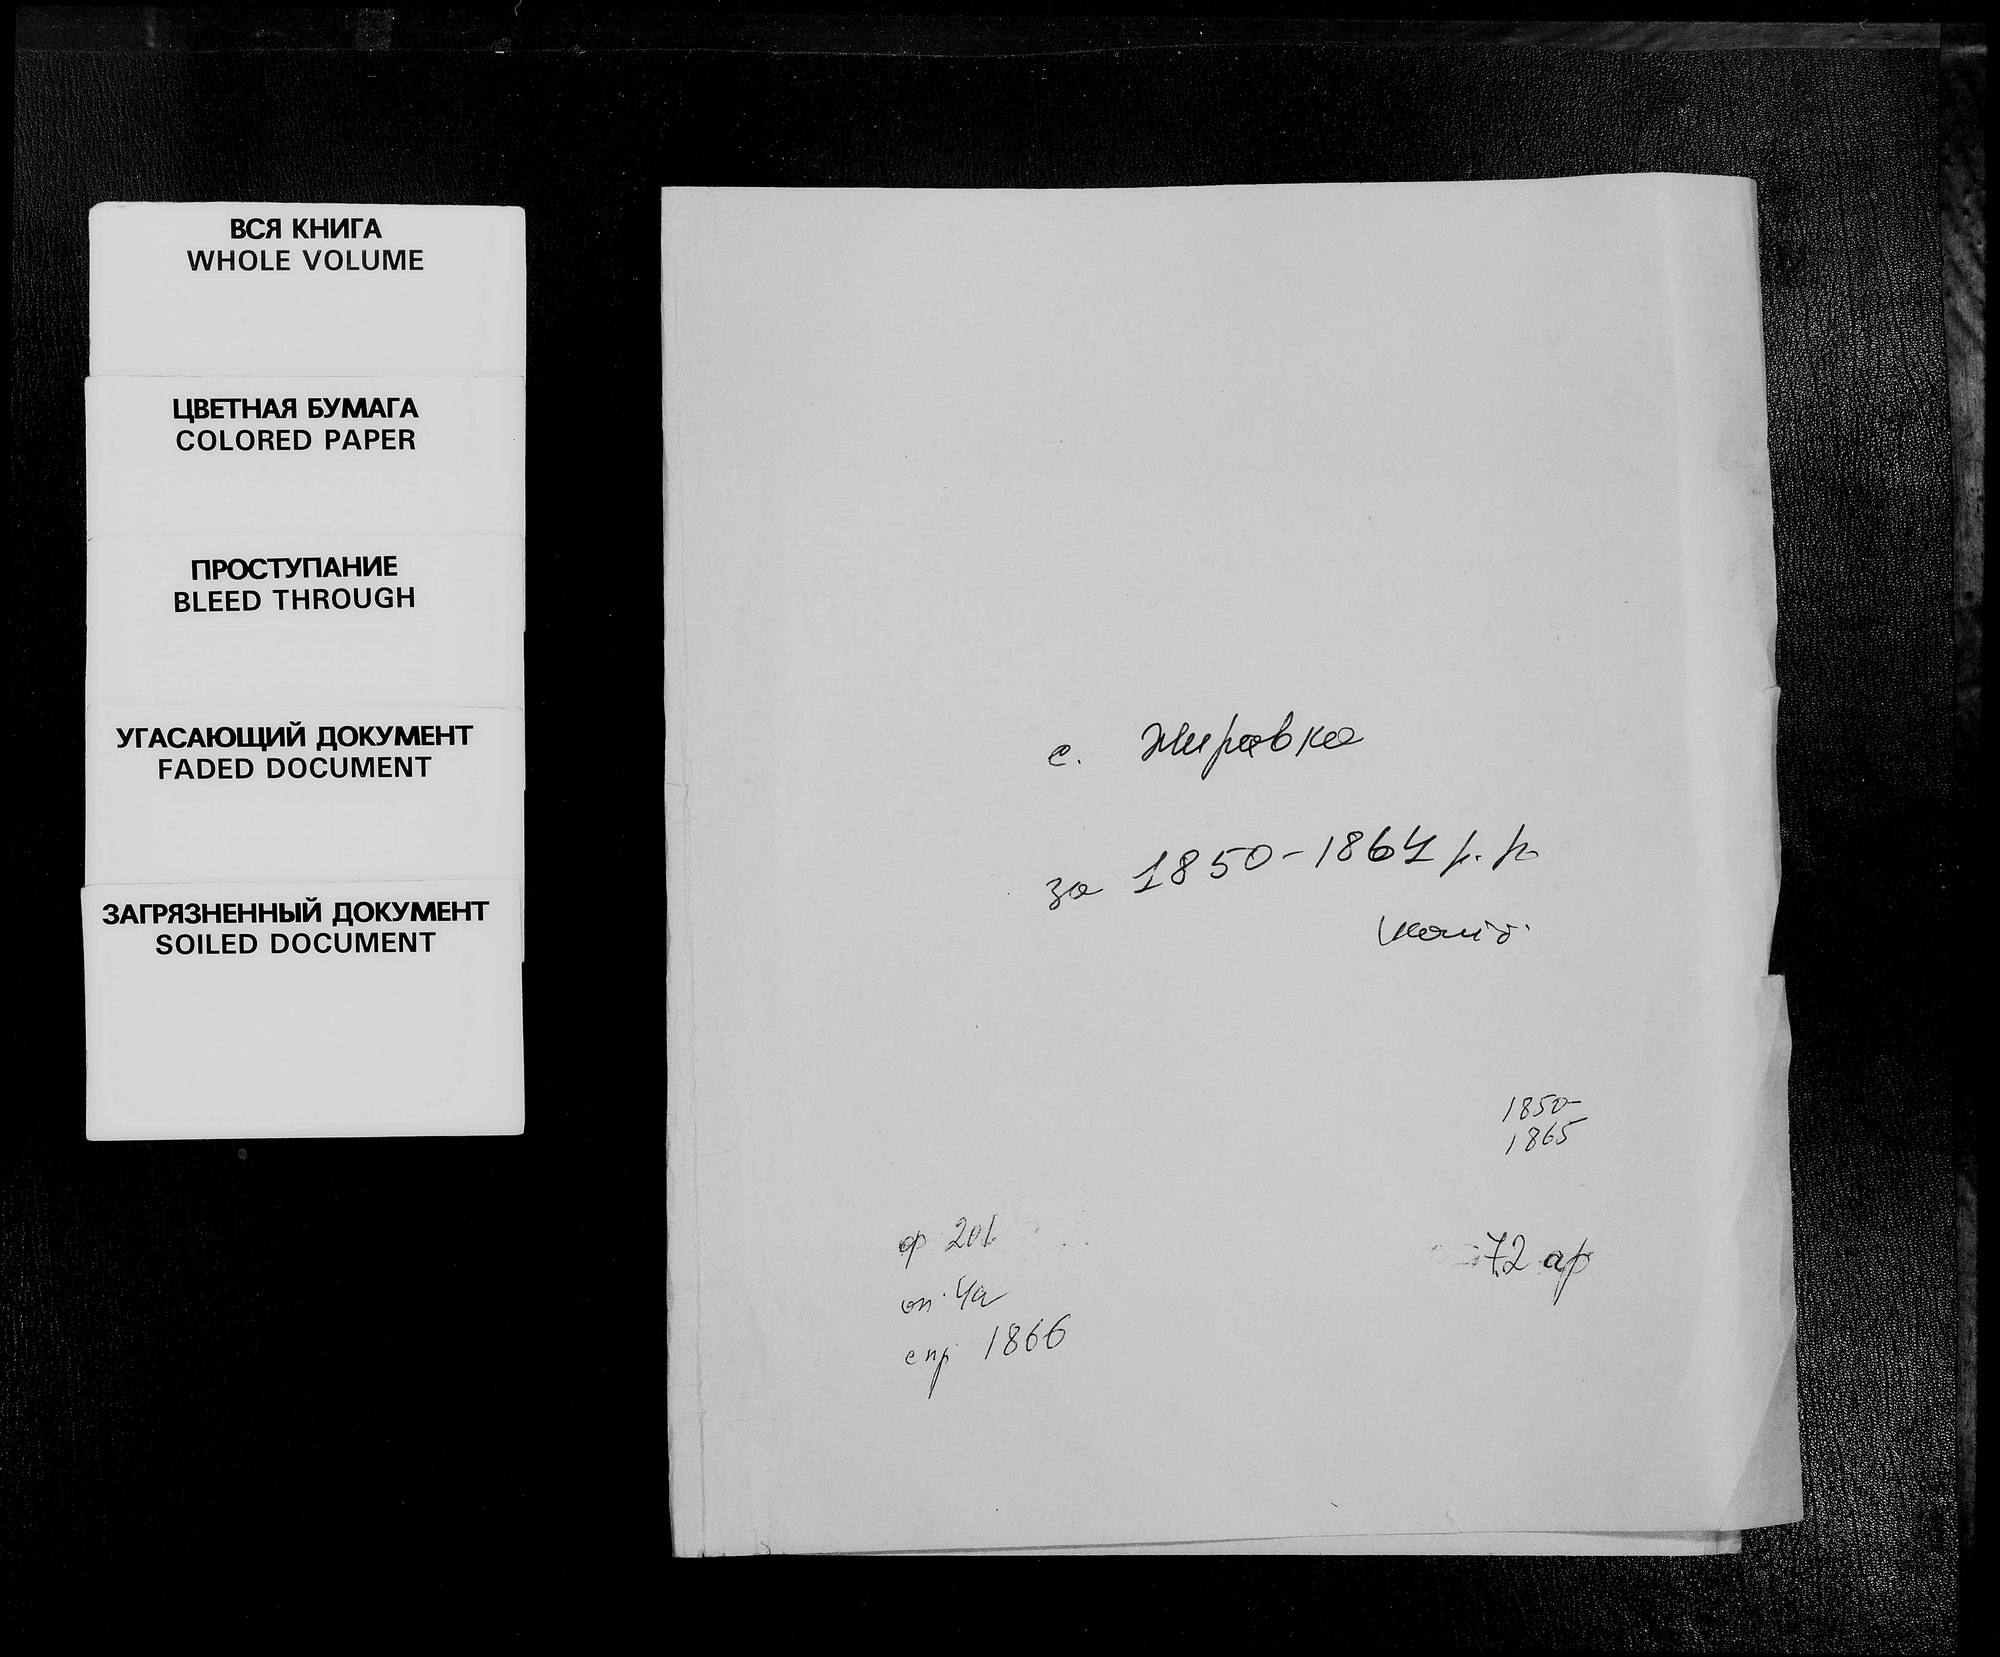 ВСЯ КНИГА
WHOLE VOLUME
ЦВЕТНАЯ БУМАГА
COLORED PAPER
ПРОСТУПАНИЕ
BLEED THROUGH
УГАСАЮЩИЙ ДОКУМЕНТ
FADED DOCUMENT
ЗАГРЯЗНЕННЫЙ ДОКУМЕНТ
SOILED DOCUMENT
с. Жиравка
за 1850-1864 р.р
1850-
1865
ф 201
оп. 4а
спр 1866
72 ар